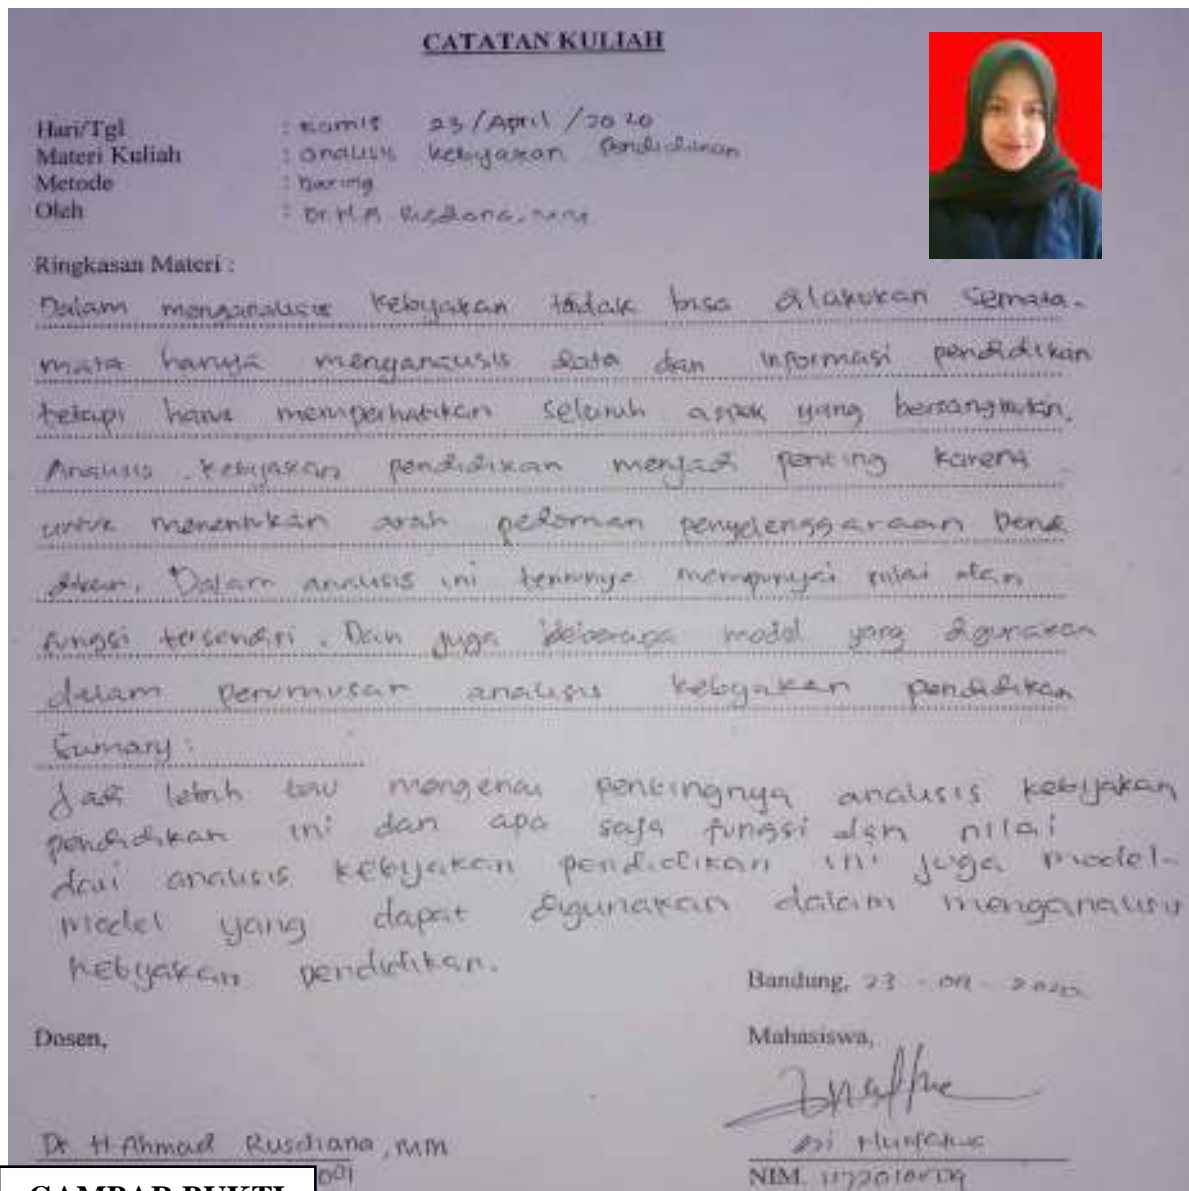 CATATAN KULIAH
Hari/Tgl : Kamis 23/April/2020
Materi Kuliah : analisis kebijakan Pendidikan
Metode : Daring
Oleh : Dr. H. A Rusdiana, MM
Ringkasan Materi :
Dalam menganalisis kebijakan tidak bisa dilakukan semata-
mata hanya menganalisis data dan informasi pendidikan
tetapi harus memperhatikan seluruh aspek yang bersangkutan.
Analisis kebijakan pendidikan menjadi penting karena
untuk menentukan arah pedoman penyelenggaraan Pend
dikan. Dalam analisis ini tentunya mempunyai nilai dan
fungsi tersendiri. Dan juga beberapa model yang digunakan
dalam perumusan analisis kebijakan pendidikan
Sumary :
Jadi lebih tau mengenai pentingnya analisis kebijakan
pendidikan ini dan apa saja fungsi dan nilai
dari analisis kebijakan pendidikan ini juga model-
model yang dapat digunakan dalam menganalisis
kebijakan pendidikan.
Bandung, 23 - 04 - 2020
Dosen,
Mahasiswa,
Dr. H. Ahmad Rusdiana, MM
001
NIM.
GAMBAR BUKTI